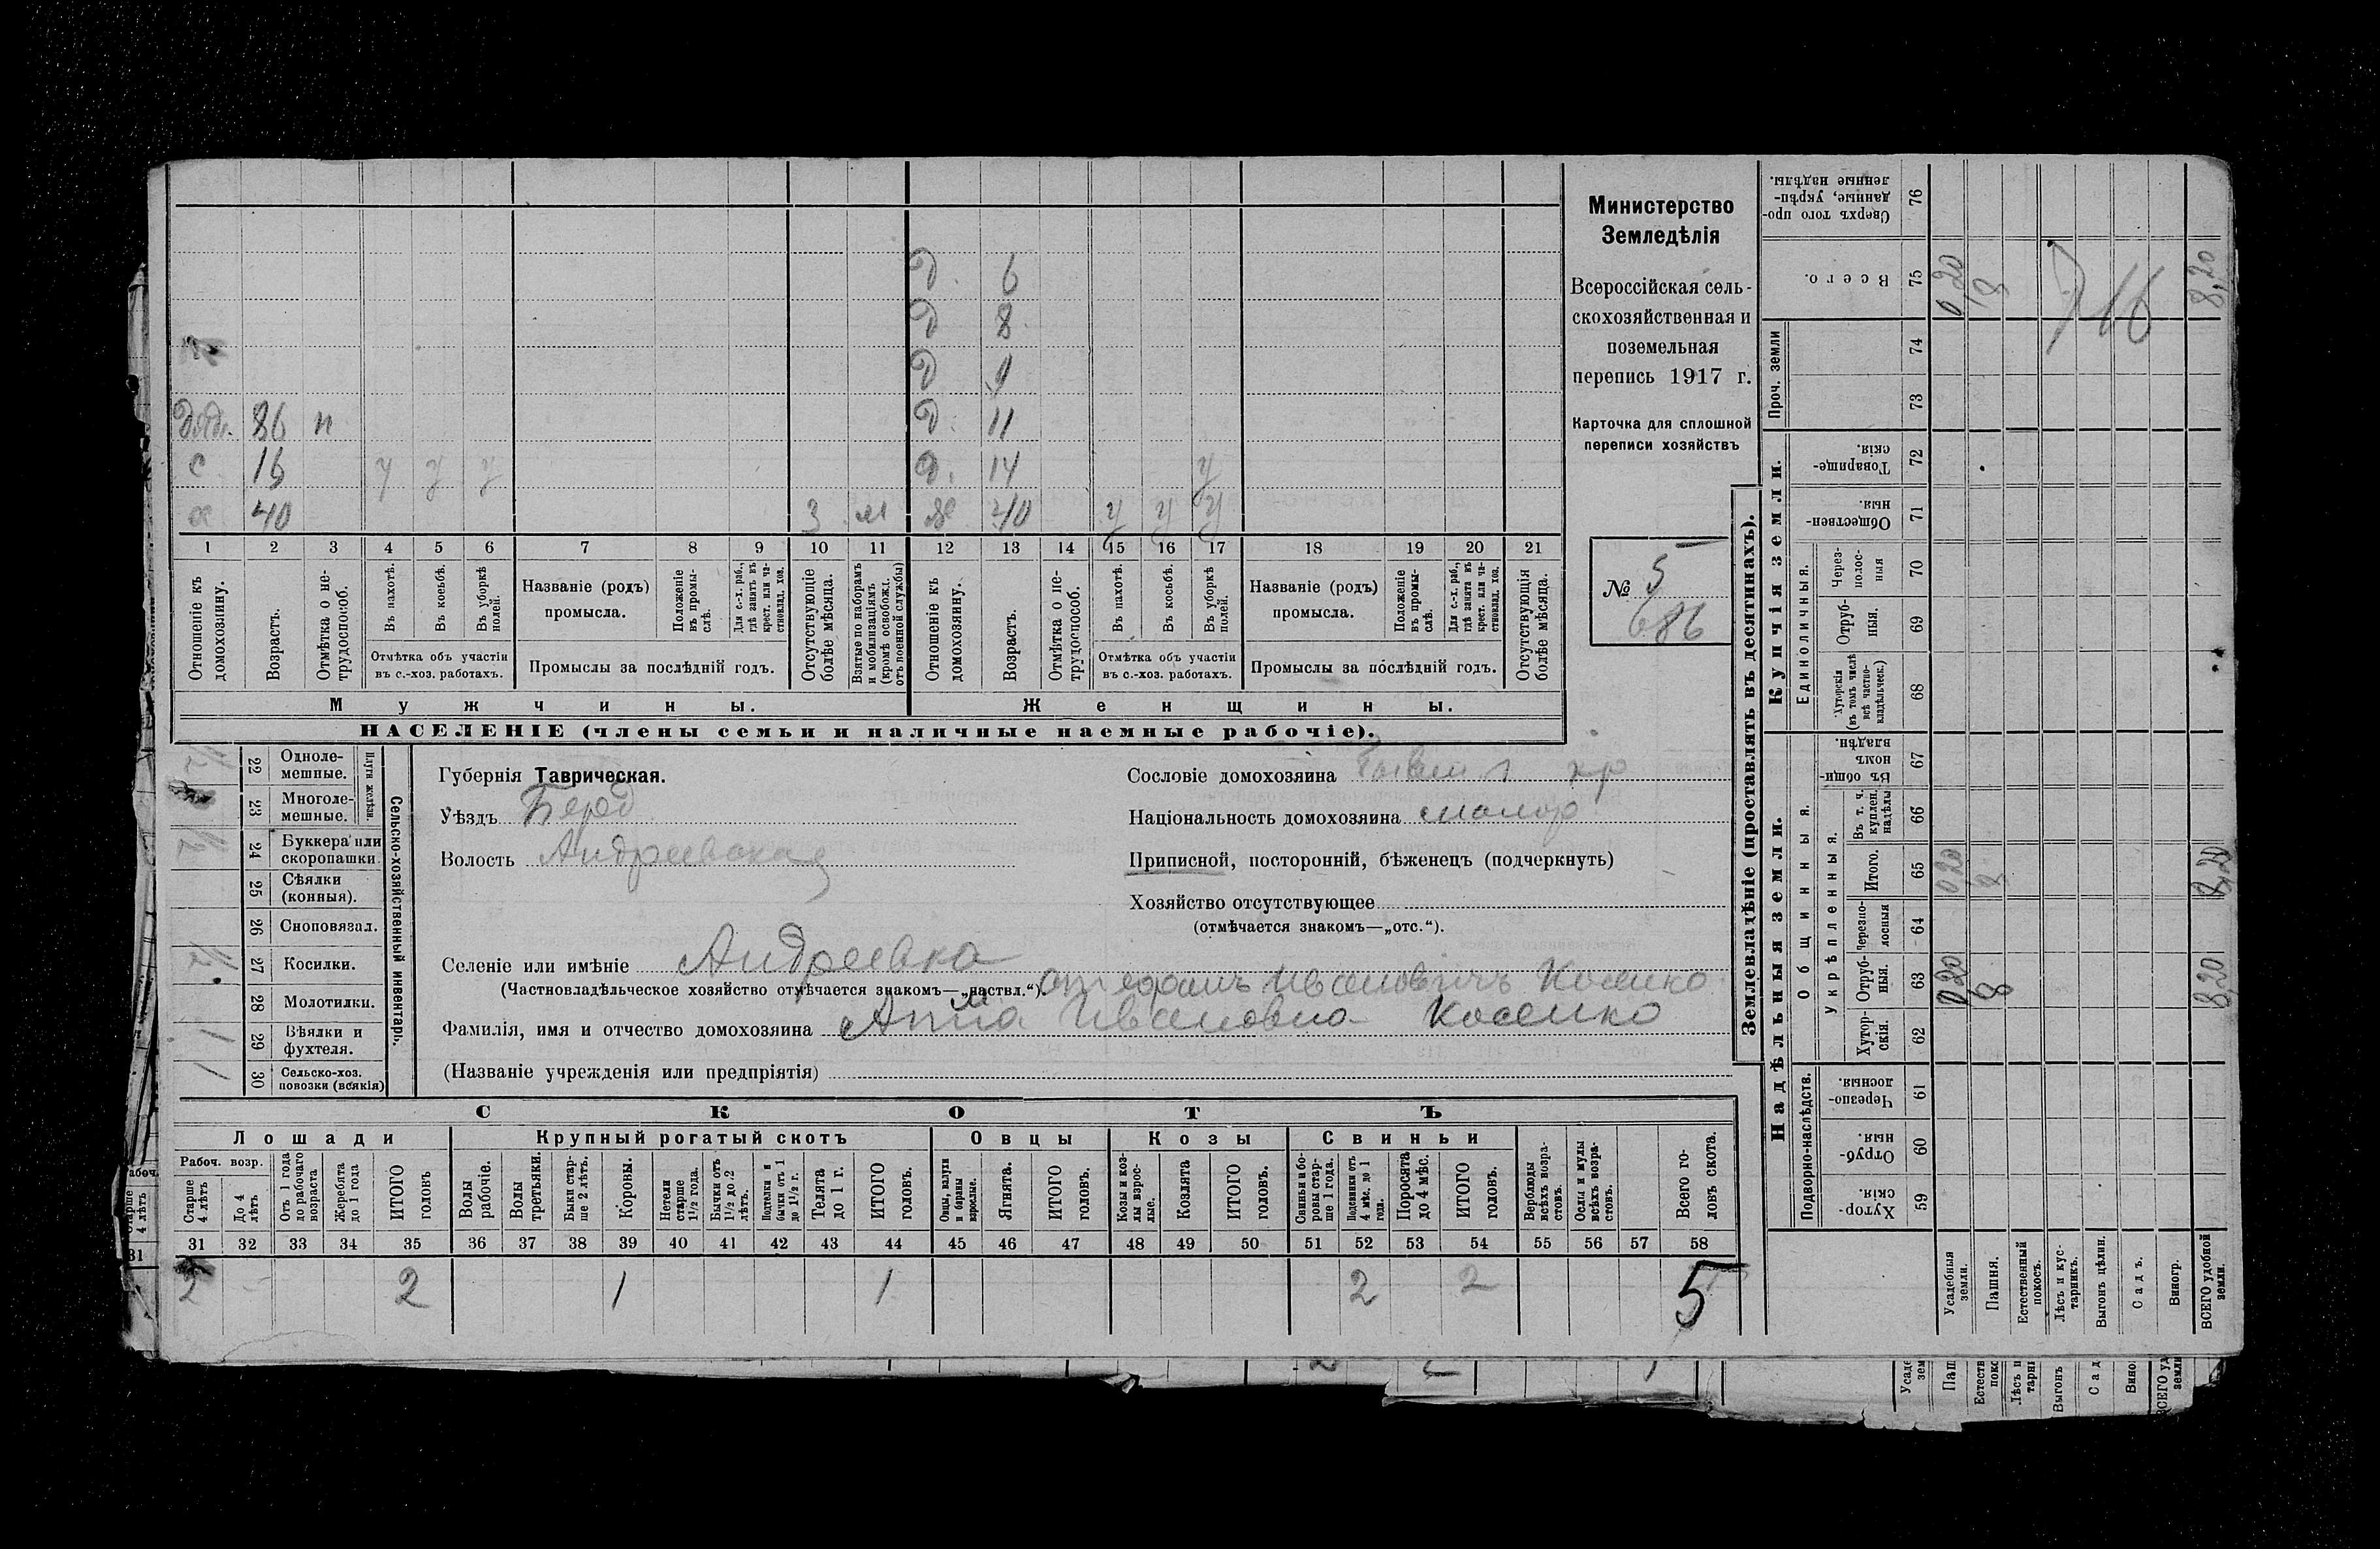 Д. 6
Д 8
Д 9
Д. 11
Д. 14 у
ж 40 у у у
86 п
с 16 у у у
х 40 3 м
1 2 3 4 5 6 7 8 9 10 11 12 13 14 15 16 17 18 19 20 21
Отношеніе къ домохозяину.
Возрастъ.
Отмѣтка о не-трудоспособ.
Въ пахотѣ.
Въ косьбѣ.
Въ уборкѣ полей.
Отмѣтка объ участіи въ с.-хоз. работахъ.
Названіе (родъ) промысла.
Положеніе въ промы-слѣ.
Для с.-х. раб., гдѣ занятъ въ крест. или ча-стновлад. хоз.
Промыслы за послѣдній годъ.
Отсутствующіе болѣе мѣсяца.
Взятые по наборамъ и мобилизаціямъ (кромѣ освобожд. отъ военной службы)
Отношеніе къ домохозяину.
Возрастъ.
Отмѣтка о не-трудоспособ.
Въ пахотѣ.
Въ косьбѣ.
Въ уборкѣ полей.
Отмѣтка объ участіи въ с.-хоз. работахъ.
Названіе (родъ) промысла.
Положеніе въ промы-слѣ.
Для с.-х. раб., гдѣ занята въ крест. или ча-стновлад. хоз.
Промыслы за послѣдній годъ.
Отсутствующія болѣе мѣсяца.
Мужчины.
Женщины.
НАСЕЛЕНІЕ (члены семьи и наличные наемные рабочіе).
Министерство
Земледѣлія
Всероссійская сель-
скохозяйственная и
поземельная
перепись 1917 г.
Карточка для сплошной
переписи хозяйствъ
№ 5
686
22 Одноле-мешные.
23 Многоле-мешные.
Плуги желѣзн.
24 Буккера или скоропашки.
25 Сѣялки (конныя).
26 Сноповязал.
27 Косилки.
28 Молотилки.
29 Вѣялки и фухтеля.
30 Сельско-хоз. повозки (всякія)
Сельско-хозяйственный инвентарь.
Губернія Таврическая.
Уѣздъ Берд
Волость Андреевская
Селеніе или имѣніе Андреевка
(Частновладѣльческое хозяйство отмѣчается знакомъ—„частвл.“).
Ивановичъ Косенко
Фамилія, имя и отчество домохозяина Анна Ивановна Косенко
(Названіе учрежденія или предпріятія)
Сословіе домохозяина кр
Національность домохозяина малор
Приписной, посторонній, бѣженецъ (подчеркнуть)
Хозяйство отсутствующее
(отмѣчается знакомъ—„отс.“).
СКОТЪ
Лошади
Крупный рогатый скотъ
Овцы
Козы
Свиньи
Рабоч. возр.
Старше 4 лѣтъ
До 4 лѣтъ
Отъ 1 года до рабочаго возраста
Жеребята до 1 года
ИТОГО головъ
Волы рабочіе.
Волы третьяки.
Быки стар-ше 2 лѣтъ.
Коровы.
Нетели старше 1½ года.
Бычки отъ 1½ до 2 лѣтъ.
Подтелки и бычки отъ 1 до 1½ г.
Телята до 1 г.
ИТОГО головъ.
Овцы, валухи и бараны взрослые.
Ягнята.
ИТОГО головъ.
Козы и коз-лы взрос-лые.
Козлята
ИТОГО головъ.
Свиньи и бо-ровы стар-ше 1 года.
Подсвинки отъ 4 мѣс. до 1 года.
Поросята до 4 мѣс.
ИТОГО головъ.
Верблюды всѣхъ возра-стовъ.
Ослы и мулы всѣхъ возра-стовъ.
Всего го-ловъ скота.
31 32 33 34 35 36 37 38 39 40 41 42 43 44 45 46 47 48 49 50 51 52 53 54 55 56 57 58
2 2 1 1 2 2 5
Землевладѣніе (проставлять въ десятинахъ).
Надѣльныя земли.
Купчія земли.
Проч. земли
Подворно-наслѣдств.
Общинныя.
Укрѣпленныя.
Единоличныя.
Хутор-скія. 59
Отруб-ныя. 60
Черезпо-лосныя. 61
Хутор-скія. 62
Отруб-ныя. 63
Черезпо-лосныя 64
Итого. 65
Въ т. ч. куплен. надѣлы 66
Въ общи-номъ владѣн. 67
Хуторскія (въ томъ числѣ всѣ частно-владѣльческ.) 68
Отруб-ныя. 69
Через-полос-ныя 70
Обществен-ныя 71
Товарище-скія. 72
73
74
Всего. 75
Сверхъ того про-данные, укрѣп-ленные надѣлы. 76
Усадебныя земли. 0,20 0,20 0,20
Пашня. 8 8 8
Естественный покосъ.
Лѣсъ и кус-тарникъ.
Выгонъ цѣлин.
Садъ.
Виногр.
ВСЕГО удобной земли. 8,20 8,20 8,20
716